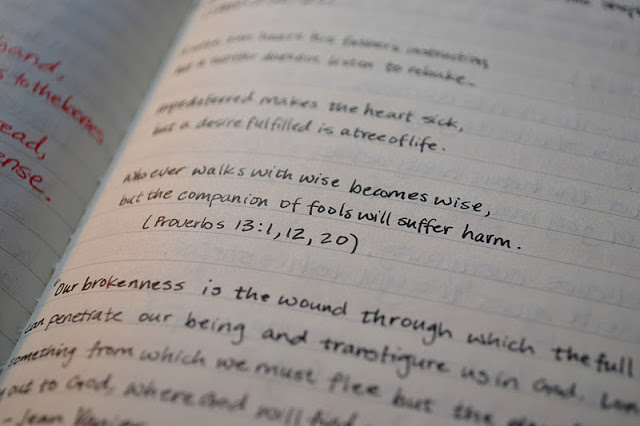 band,
s to the bones
read,
ense.
son hears his father's instruction,
but a scoffer does not listen to rebuke.
Hope deferred makes the heart sick,
but a desire fulfilled is a tree of life.
Whoever walks with wise becomes wise,
but the companion of fools will suffer harm.
(Proverbs 13:1, 12, 20)
"Our brokenness is the wound through which the full
can penetrate our being and transfigure us in God. Lon
something from which we must flee but the
out to God, where God will find
- Jean Vanier